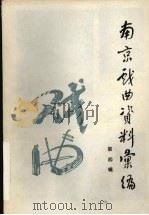 南京戏曲资料汇编
第四辑
戏曲